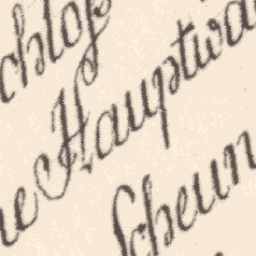 chloß
e Hauptwa
Scheun